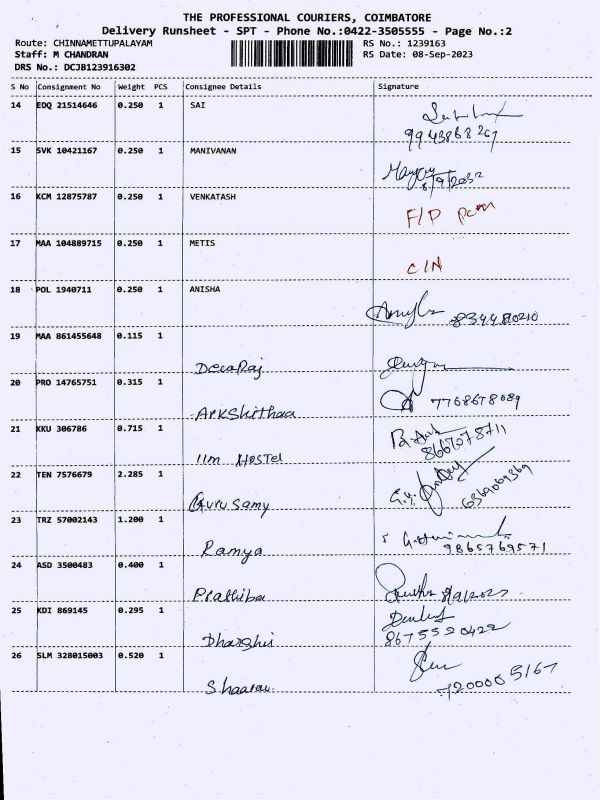 THE PROFESSIONAL COURIERS, COIMBATORE
Delivery Runsheet - SPT - Phone No.:0422-3505555 - Page No.:2
Route: CHINNAMETTUPALAYAM RS No.: 1239163
Staff: M CHANDRAN RS Date: 08-Sep-2023
DRS No.: DCJB123916302
S No Consignment No Weight PCS Consignee Details Signature
14 EDQ 21514646 0.250 1 SAI
9943868267
15 SVK 10421167 0.250 1 MANIVANAN
16 KCM 12875787 0.250 1 VENKATASH
F/P
17 MAA 104889715 0.250 1 METIS
C/N
18 POL 1940711 0.250 1 ANISHA
19 MAA 861455648 0.115 1
DevaRaj
20 PRO 14765751 0.315 1
ArKShithaa 7768678089
21 KKU 306786 0.715 1
IIM HOSTEL 8667078711
22 TEN 7576679 2.285 1
Guru Samy 6369069369
23 TRZ 57002143 1.200 1
Ramya 9865769571
24 ASD 3500483 0.400 1
Prathiba
25 KDI 869145 0.295 1
Dharshii 8675520422
26 SLM 328015003 0.520 1
7200005167